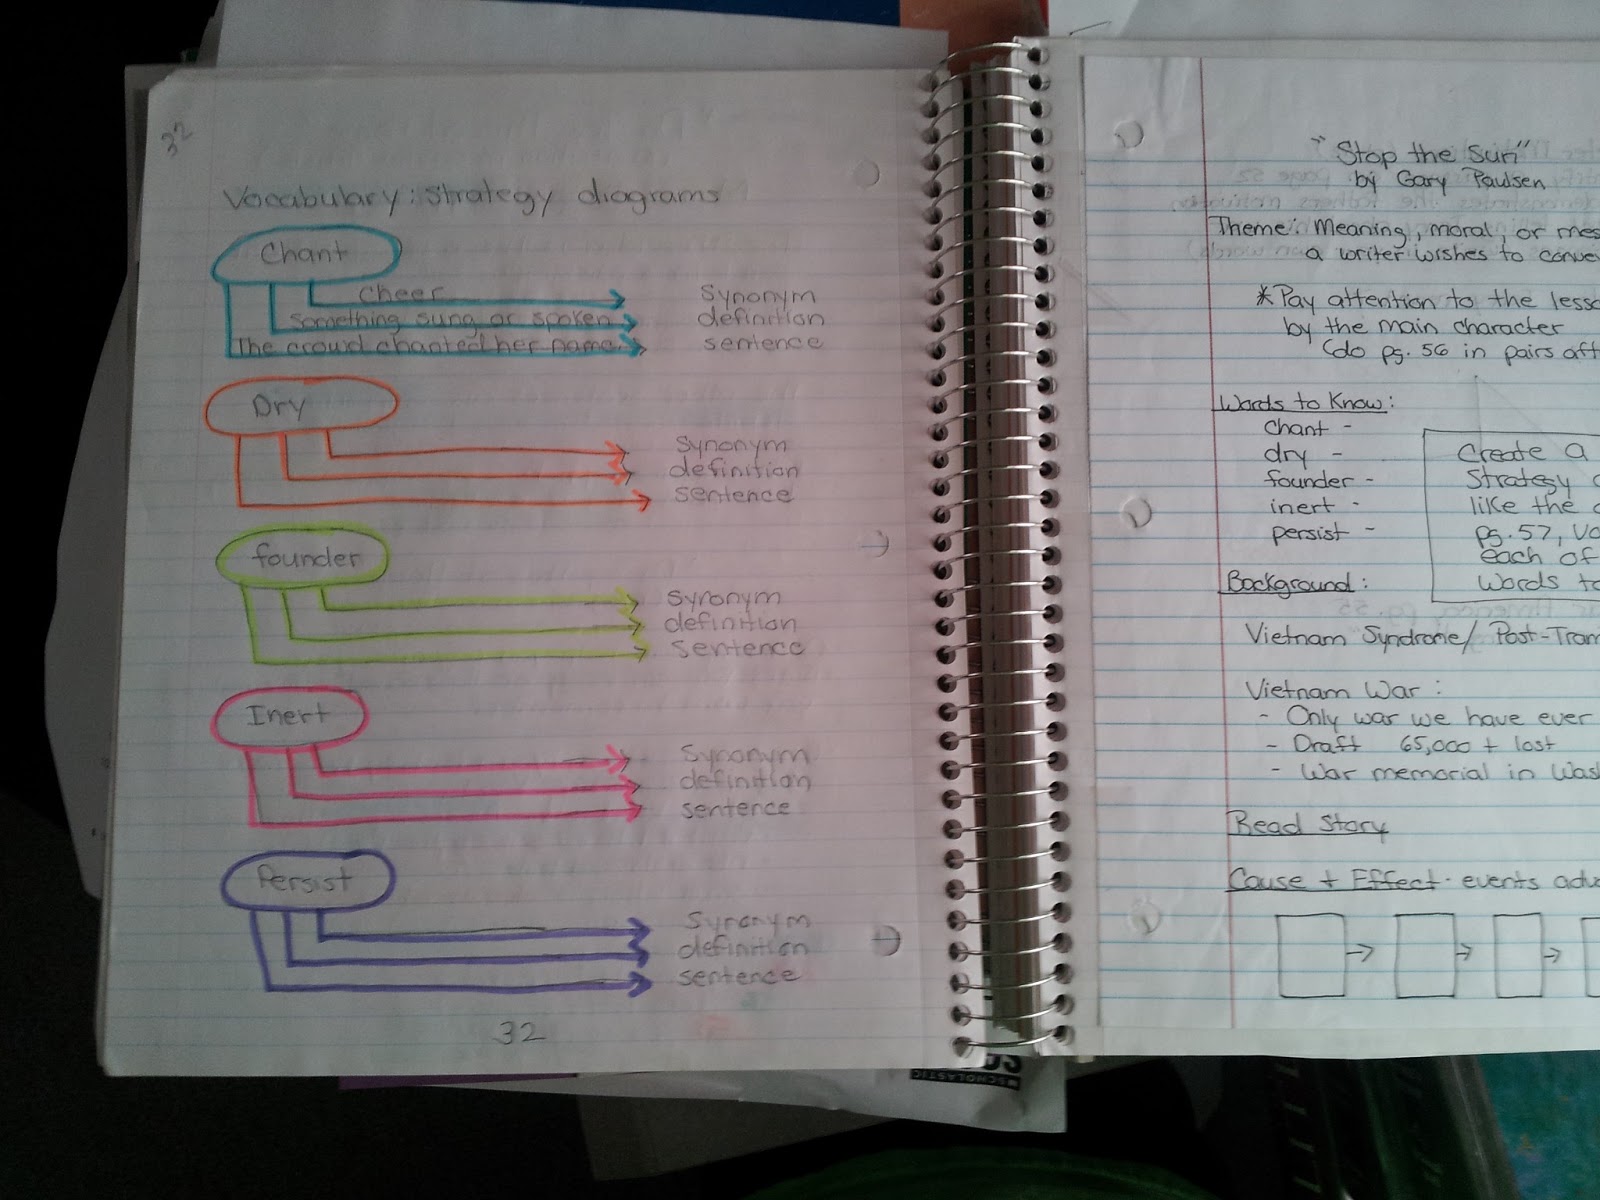 32
Vocabulary: Strategy diagrams
Chant
Cheer Synonym
Something sung or spoken definition
The crowd chanted her name. sentence
Dry
Synonym
definition
sentence
founder
Synonym
definition
sentence
Inert
Synonym
definition
sentence
Persist
Synonym
definition
sentence
32
"Stop the Sun"
by Gary Paulsen
Theme: Meaning, moral, or mes
a writer wishes to conve
*Pay attention to the lesso
by the main character
(do pg. 56 in pairs aft
Words to Know:
chant -
dry -
founder -
inert -
persist -
Create a
Strategy
like the
pg. 57, Vo
each of
words to
Background:
Vietnam Syndrome/ Post-Tram
Vietnam War:
- Only war we have ever
- Draft 65,000 + lost
- War memorial in Was
Read Story
Cause + Effect- events adv
SCHOLASTIC